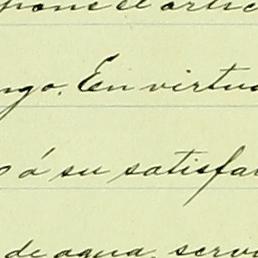 pone el artic
ngo. En virtud
o á su satisfa
de agua, serv